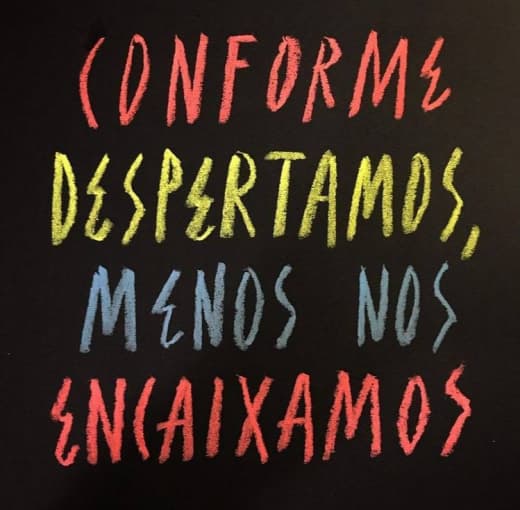 CONFORME
DESPERTAMOS,
MENOS NOS
ENCAIXAMOS